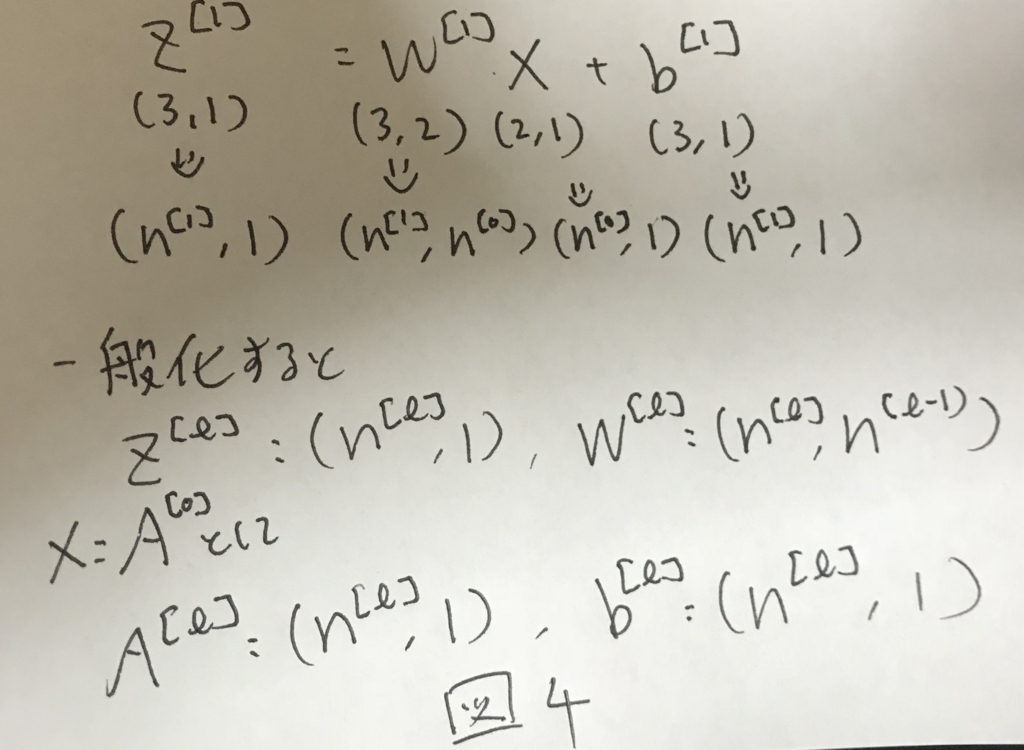 z^[1] = W^[1] X + b^[1]
(3,1) (3,2) (2,1) (3,1)
(n^[1],1) (n^[1],n^[0]) (n^[0],1) (n^[1],1)
一般化すると
z^[l]:(n^[l],1), W^[l]:(n^[l],n^[l-1])
X=A^[0]として
A^[l]:(n^[l],1), b^[l]:(n^[l],1)
図4